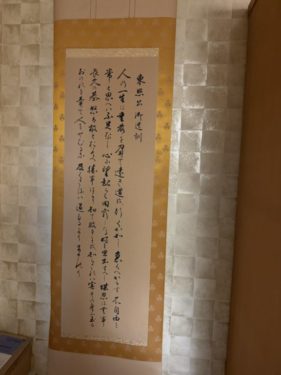 東照公 御遺訓
人の一生は重荷を負て遠き道を行くが如し 急ぐべからず 不自由を
常と思へば不足なし 心に望起らば困窮したる時を思ひ出すべし 堪忍は無事
長久の基 怒は敵と思へ 勝事ばかり知て負る事を知らざれば害其身に至る
おのれを責て人をせむるな 及ばざるは過たるよりまされり